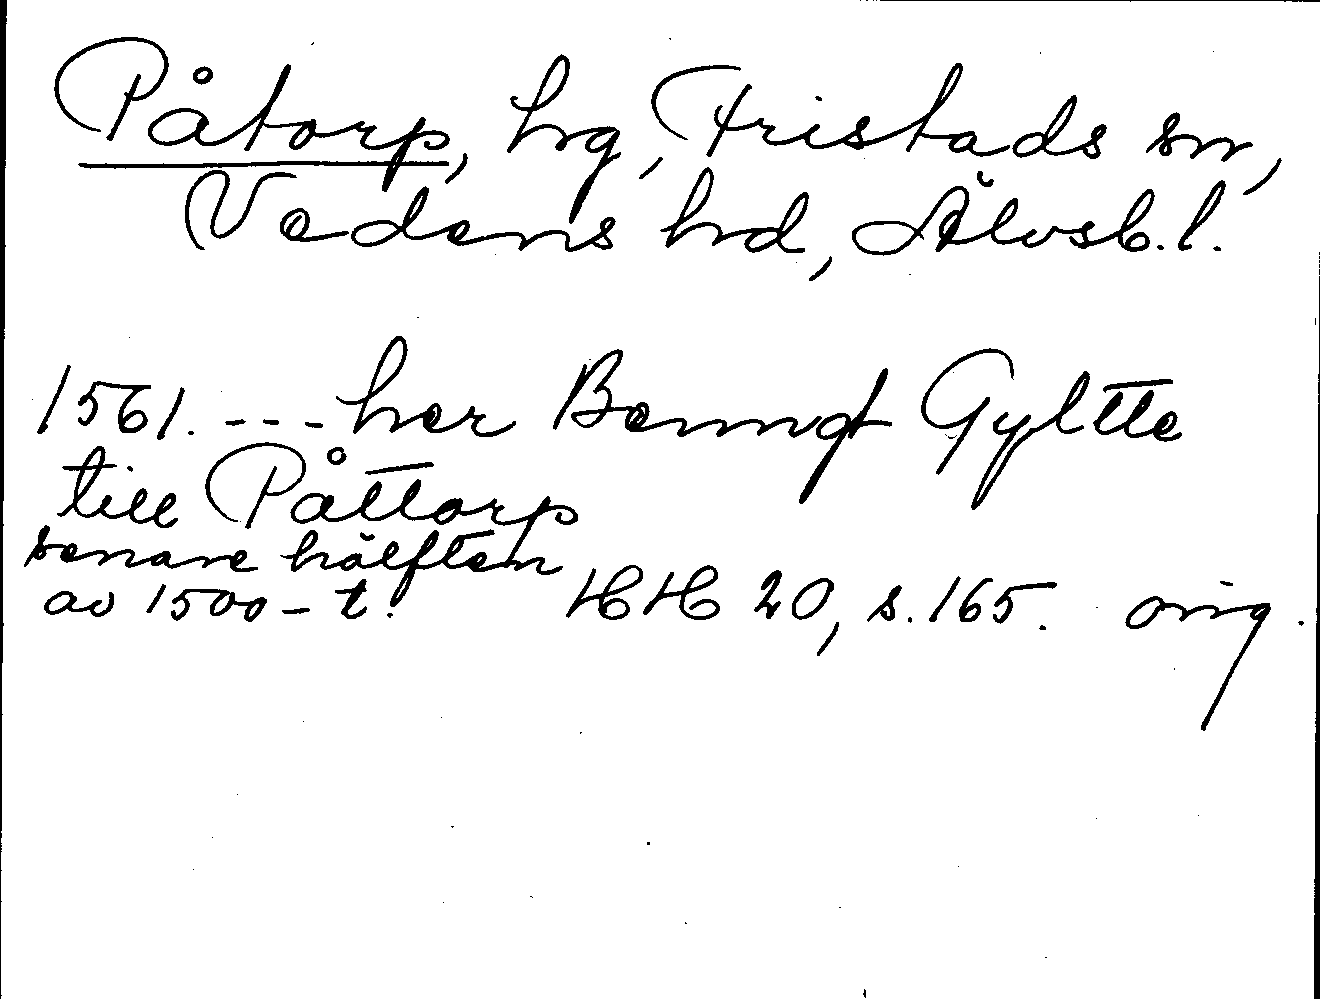 Påtorp, hrg, Fristads sn,
Vedens hrd, Älvsb. l.
1561. --- her Benngt Gyltte
till Påttorp
senare hälften
av 1500-t. HH 20, s. 165. orig.